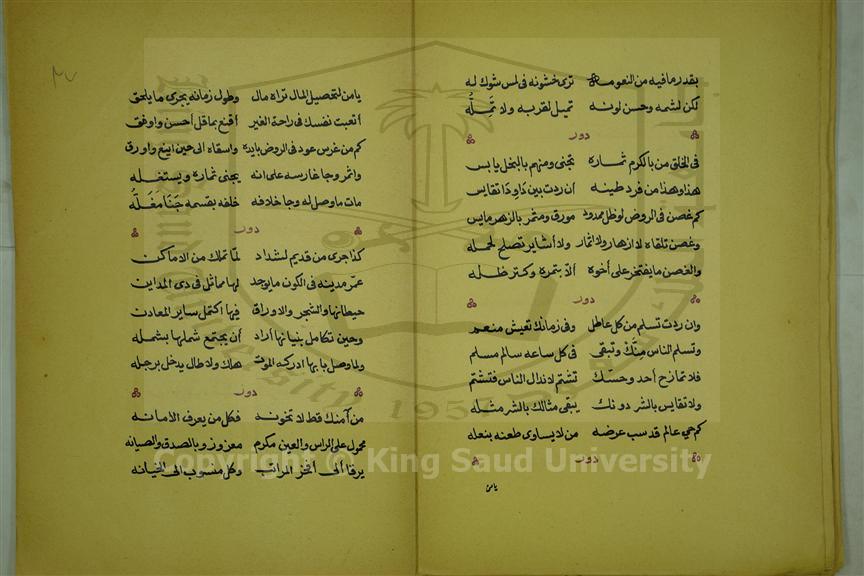 بقدر ما فيه من النعومه ترى خشونه فى لمس شوك له
لكن لشمه وحسن لونه تميل لقربه ولا تملّه
دور
فى الخلق من بالكرم ثماره تجنى ومنهم بالبخل يابس
هذا وهذا من فرد طينه ان ردت بين دا ودا تقايس
كم غصن فى الروض لو ظل ممدود مورق ومثمر بالزهر مايس
وغصن تلقاه لا ازهار ولا اثمار ولا أشاير تصلح لحمله
والغصن ما يفتخر على أخوه ألا بتمره وكتر ظله
دور
وان ردت تسلم من كل عاطل وفى زمانك تعيش منعم
وتسلم الناس منك وتبقى فى كل ساعه سالم مسلم
فلا تمازح أحد وحسك تشتم لاندال الناس فتشتم
ولا تقايس بالشر دونك يبقى مثالك بالشر مثله
كم حي عالم قد سب عرضه من لا يساوى طعنه بنعله
دور
يا من
٣٧
يا من لتحصيل المال تراه مال وطول زمانه يجرى ما يلحق
أتعبت نفسك فى راحة الغير أقنع بما قل أحسن واوفق
كم من غرس عود فى الروض بايده واسقاه الى حين اينع واورق
واثمر وجا غارسه على انه يجنى ثماره ويستغله
مات ما وصل له وجا خلافه خلفه بقسمه جنا مغلّه
دور
كذا جرى من قديم لشداد لمّا تملك من الاماكن
عمّر مدينه فى الكون ما يوجد لها مماثل فى دى المداين
حيطانها والشجر والاوراق فيها اكتمل ساير المعادن
وحين تكامل بنيانها أراد أن يجتمع شملها بشمله
ولما وصل بابها ادركه الموت هاك ولا طال يدخل برجله
دور
من آمنك قط لا تخونه فكل من يعرف الامانه
محمول على الراس والعين مكرم معزوز وبالصدق والصيانه
يرقا الى أفخر المراتب وكل منسوب الى الخيانه
Copyright © King Saud University